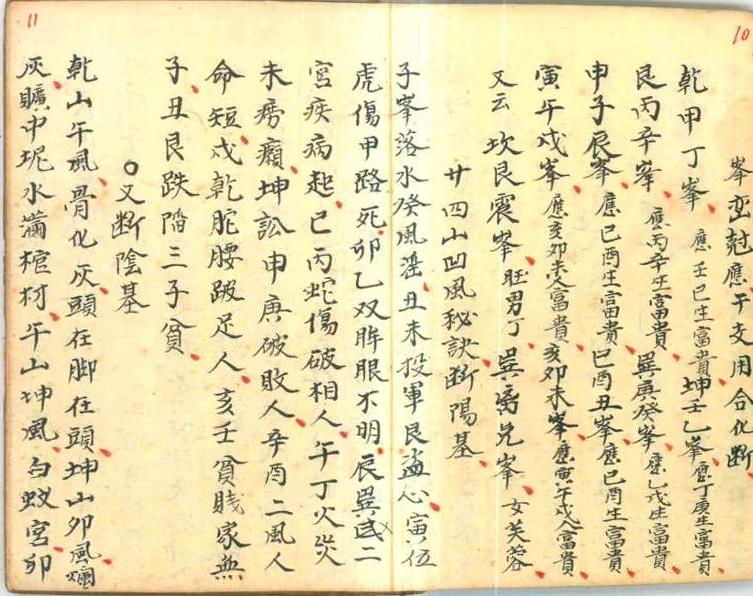 10
峯峦尅應干支用合化断
乾甲丁峯應壬巳生富貴坤壬乙峯應丁庚生富貴
艮丙辛峯應丙辛生富貴巽庚癸峯應乙戌生富貴
申子辰峯應巳酉生富貴巳酉丑峯應巳酉生富貴
寅午戌峯應亥卯未人富貴亥卯未峯應寅午戌人富貴
又云坎艮震峯旺男丁巽离兑峯女芙蓉
廿四山凹風秘訣断陽基
子峯落水癸風滛丑未投軍艮盗心寅伍
11
虎傷甲路死卯乙双眸眼不明辰巽二
宫疾病起巳丙蛇傷破相人午丁火炎
未癆癩坤訟申庚破敗人辛酉二風人
命短戌乾駝腰跛足人亥壬貧賤家無
子丑艮跌陷三子貧
○又断陰基
乾山午風骨化灰頭在脚在頭坤山卯風爛
灰壙中坭水滿棺材午山坤風白蚁宫卯